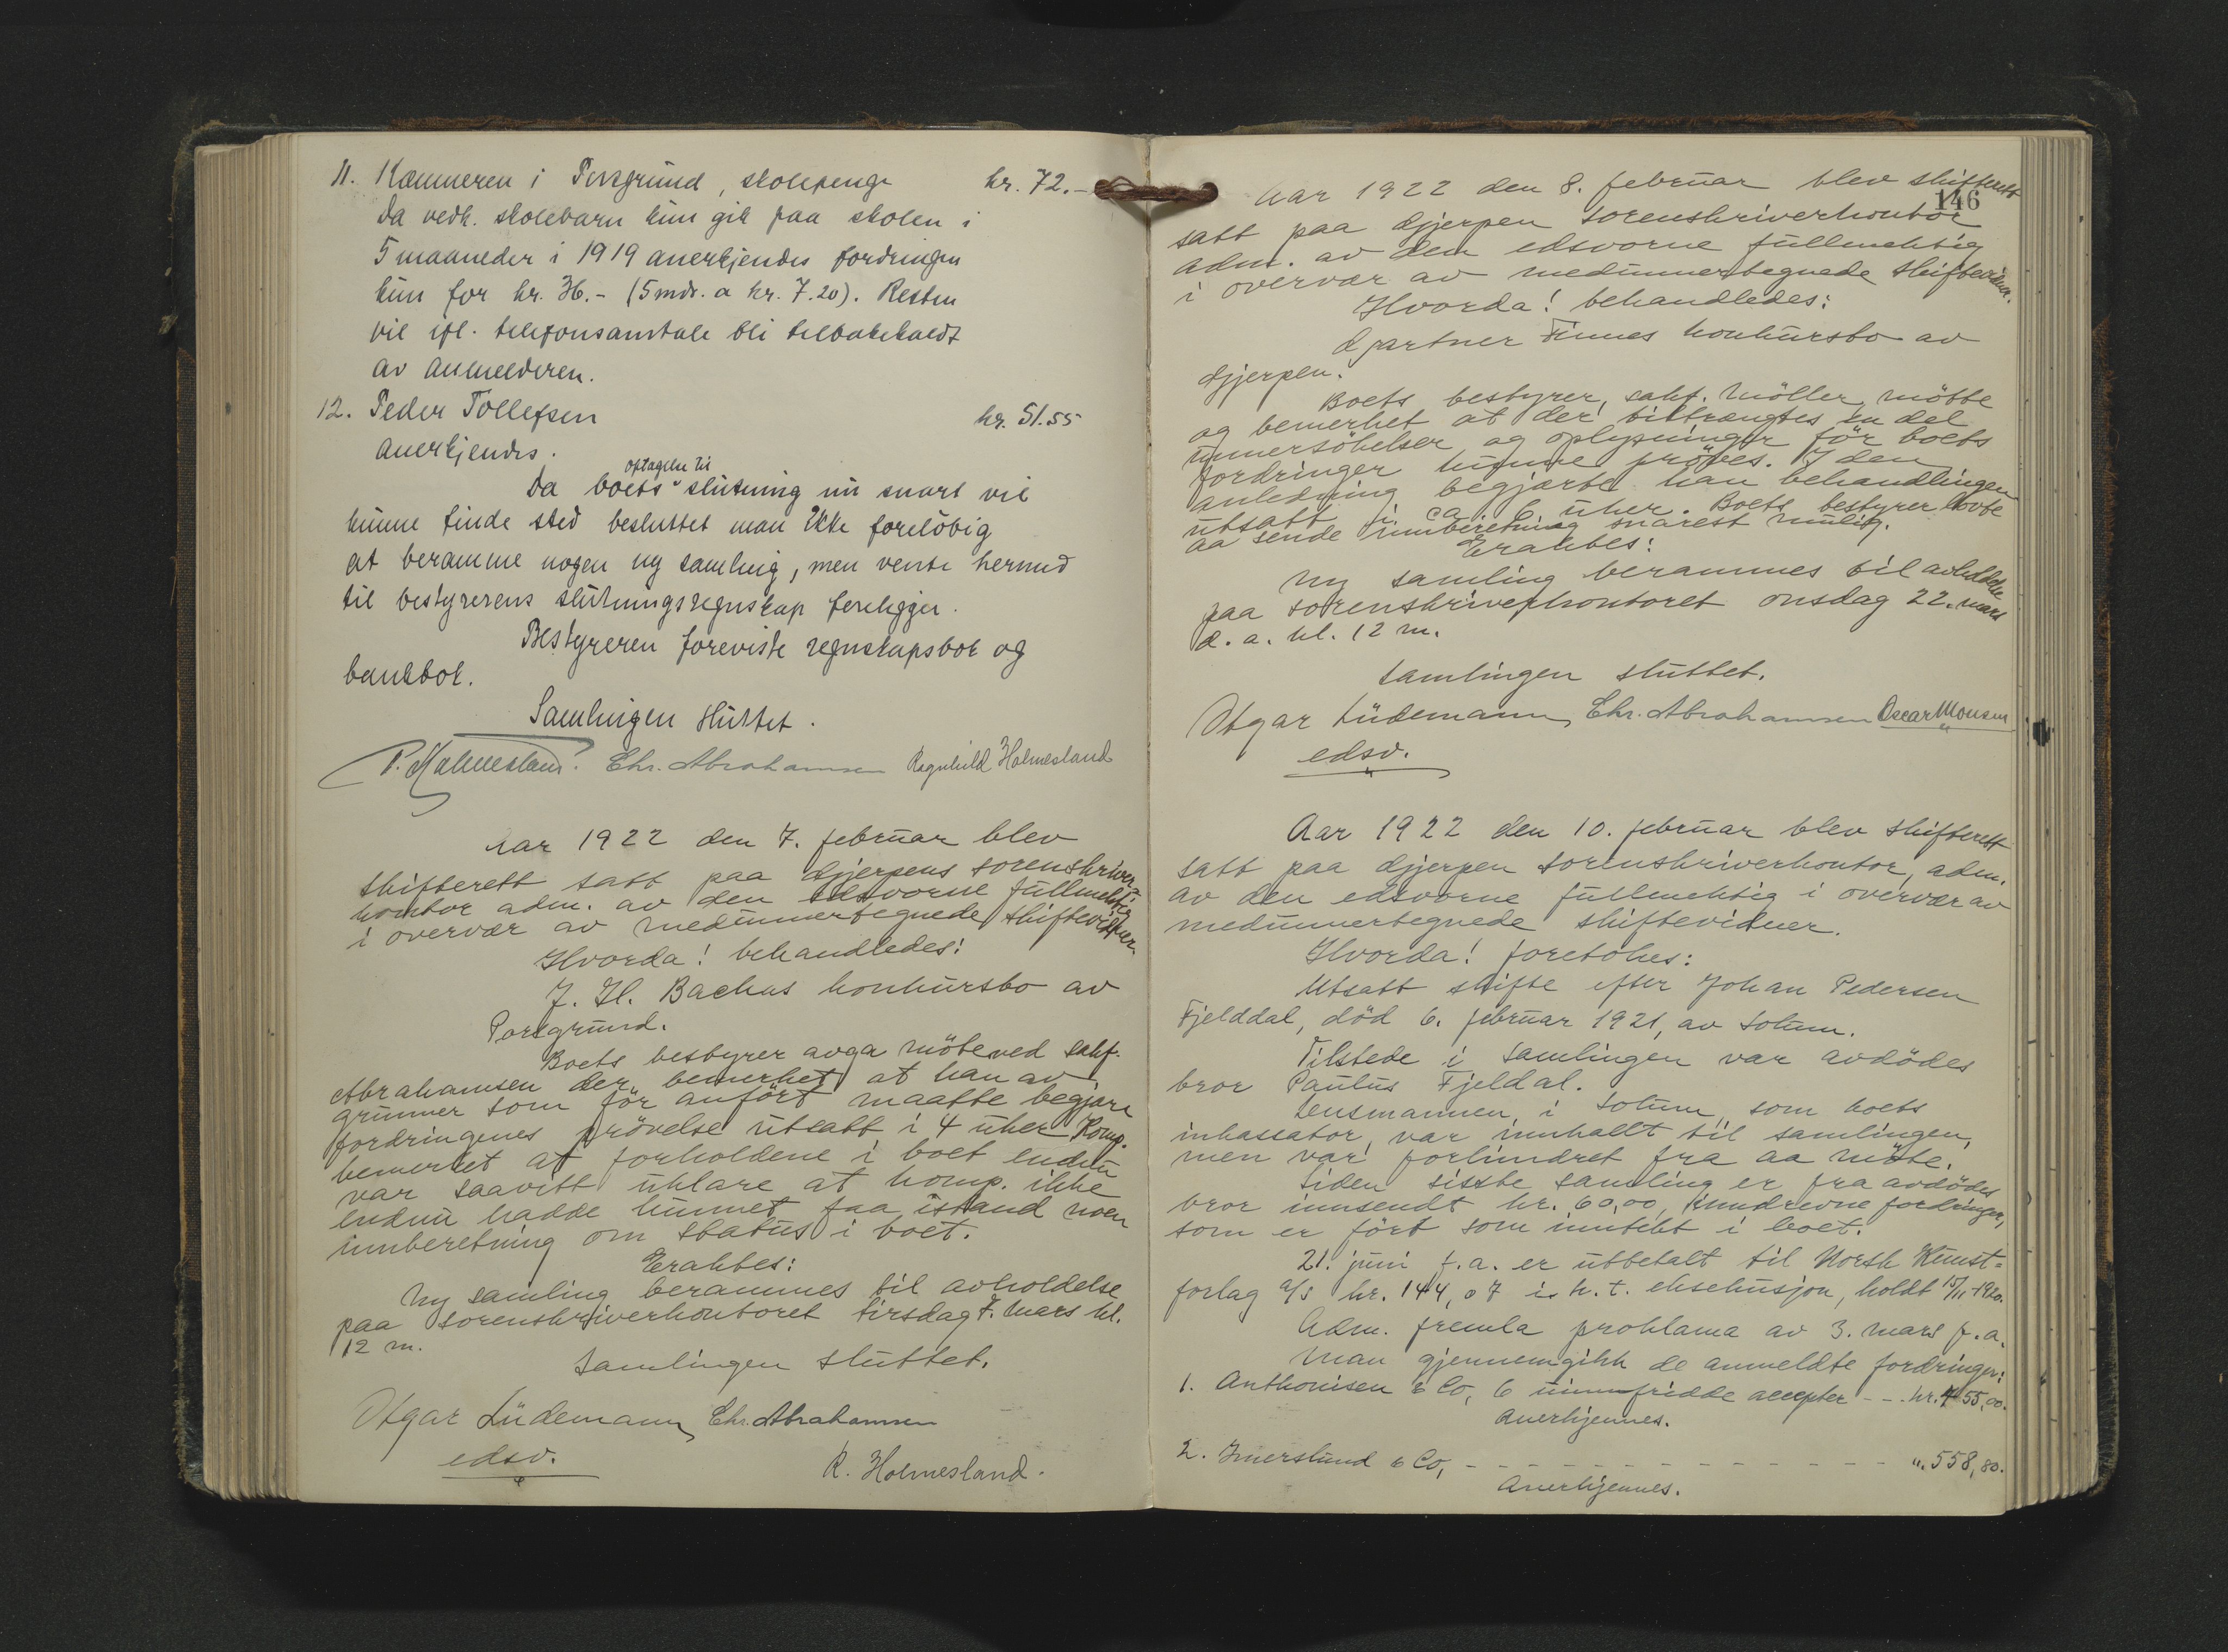 11. Kæmneren i Porsgrund, skolepenge kr. 72.-
Da vedk. skolebarn kun gik paa skolen i
5 maaneder i 1919 anerkjendes fordringen
kun for kr. 36.- (5 mdr. a kr. 7.20). Resten
vil ifl. telefonsamtale bli tilbakekaldt
av anmelderen.
12. Peder Tollefsen kr. 51.55
anerkjendes.
optagelse til
Da boets slutning nu snart vil
kunne finde sted besluttet man ikke foreløbig
at beramme nogen ny samling, men vente hermed
til bestyrerens slutningsregnskap foreligger.
Bestyreren foreviste regnskapsbok og
bankbok.
Samlingen sluttet.
P. Holmesland. Chr. Abrahamsen Ragnhild Holmesland
Aar 1922 den 7. februar blev
skifterett satt paa Gjerpens sorenskriver-
kontor adm. av den edsvorne fullmektig
i overvær av medunnertegnede skiftevidner
Hvorda! behandledes:
J. H. Backus konkursbo av
Porsgrund.
Boets bestyrer avga møte ved sakf.
Abrahamsen der bemerket at han av
grunner som før anført maatte begjære
fordringenes prøvelse utsatt i 4 uker. Komp.
bemerket at forholdene i boet endnu
var saavitt uklare at komp. ikke
endnu hadde kunnet faa istand noen
innberetning om status i boet.
Eraktes:
Ny samling berammes til avholdelse
paa sorenskriverkontoret tirsdag 7. mars kl.
12 m.
Samlingen sluttet.
Otgar Lüdemann, Chr. Abrahamsen
edsv.
R. Holmesland.
146
Aar 1922 den 8. februar blev skifterett
satt paa Gjerpen sorenskriverkontor
adm. av den edsvorne fullmektig
i overvær av medunnertegnede skiftevidner.
Hvorda! behandledes:
Gartner Finnes konkursbo av
Gjerpen.
Boets bestyrer, sakf. Möller møtte
og bemerket at der tiltrængtes en del
unnersøkelser og oplysninger før boets
fordringer kunne prøves. I den
anledning begjærte han behandlingen
utsatt i ca. 6 uker. Boets bestyrer lovte
aa sende innberetning snarest mulig.
Eraktes:
Ny samling berammes til avholdelse
paa sorenskriverkontoret onsdag 22. mars
d. a. kl. 12 m.
Samlingen sluttet.
Otgar Lüdemann, Chr. Abrahamsen Oscar Monsen
edsv.
Aar 1922 den 10. februar blev skifterett
satt paa Gjerpen sorenskriverkontor, adm.
av den edsvorne fullmektig i overvær av
medunnertegnede skiftevidner.
Hvorda! foretokes:
Utsatt skifte efter Johan Pedersen
Fjelddal, död 6. februar 1921, av Solum.
Tilstede i samlingen var avdödes
bror Paulus Fjeldal.
Lensmannen i Solum, som boets
inkassator, var innkallt til samlingen,
men var forhindret fra aa møte.
Siden sisste samling er fra avdödes
bror innsendt kr. 60,00, inndrevne fordringer,
som er fört som inntekt i boet.
21. juni f.a. er utbetalt til Norsk Kunst=
forlag a/s kr. 144,07 i h. t. eksekusjon, holdt 15/11-1920.
Adm. fremla proklama av 3. mars f.a.
Man gjennemgikk de anmeldte fordringer:
1. Anthonisen & Co, 6 uinnfridde accepter - - kr. 455,00.
Anerkjennes.
2. Imerslund & Co, - - - - - - - - - - - - - - ". 558,80.
Anerkjennes.